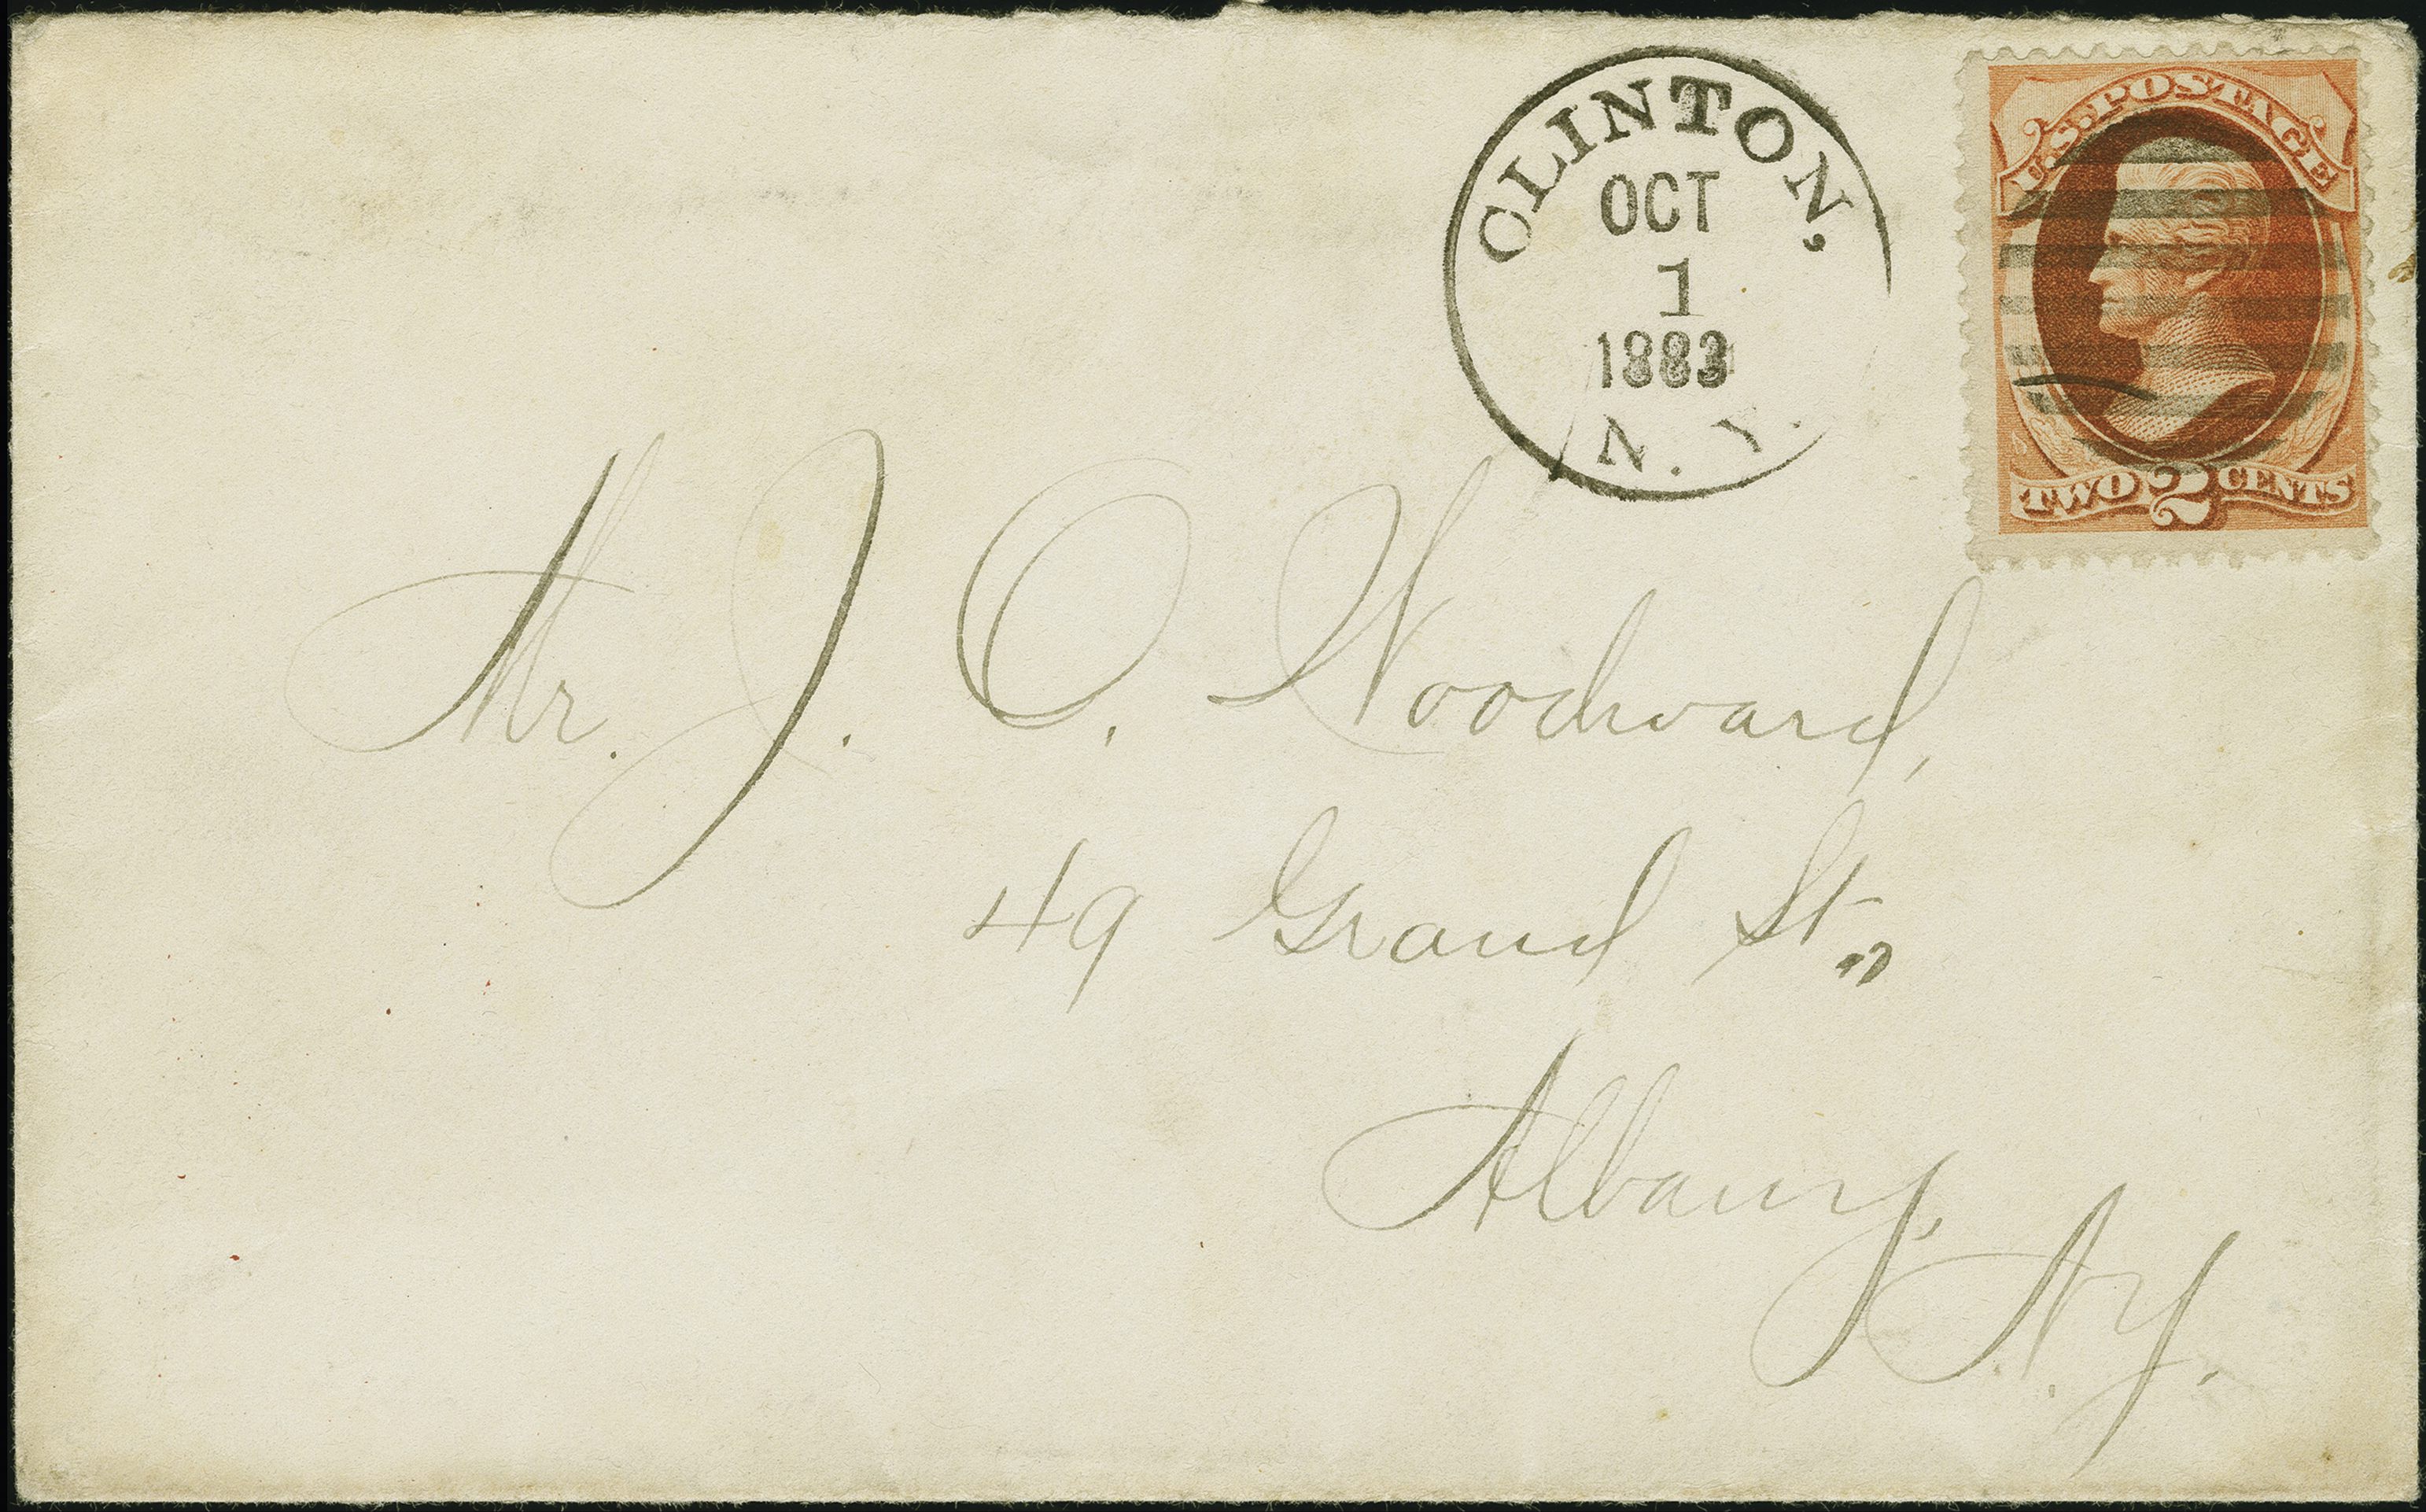 CLINTON,
OCT
1
1883
N. Y.
U.S. POSTAGE
TWO 2 CENTS
Mr. J. O. Woodward,
49 Grand St.,
Albany,
N.Y.